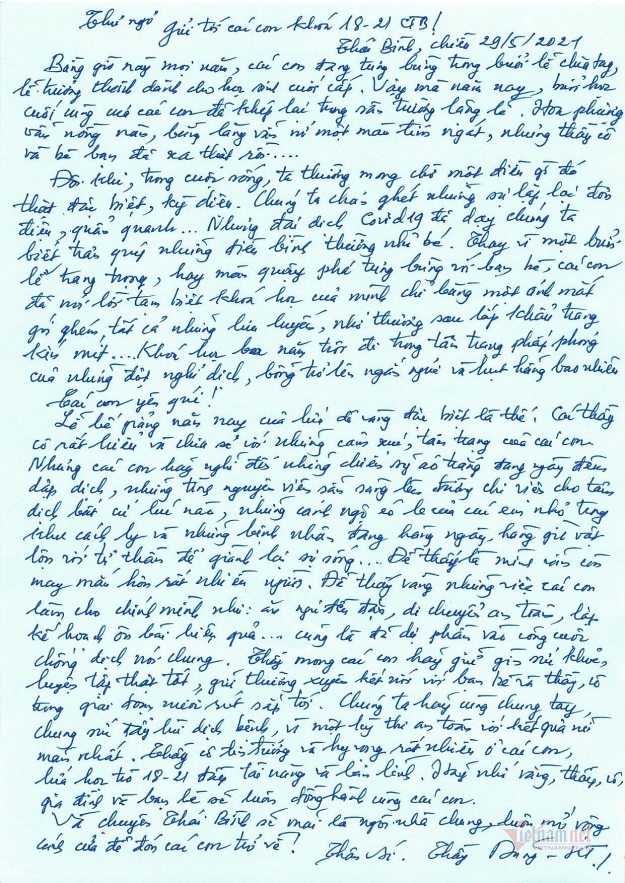 Thư ngỏ
gửi tới các con khoá 18-21 CTB!
Thái Bình, chiều 29/5/2021
Bằng giờ này mọi năm, các con đang tưng bừng trong buổi lễ chia tay,
lễ trưởng thành dành cho học sinh cuối cấp. Vậy mà năm nay, buổi học
cuối cùng của các con đã khép lại trong sân trường lặng lẽ. Hoa phượng
vẫn nồng nàn, bằng lăng vẫn nở một màu tím ngát, nhưng thầy cô
và bè bạn đã xa thật rồi....
Đôi khi, trong cuộc sống, ta thường mong chờ một điều gì đó
thật đặc biệt, kỳ diệu. Chúng ta chán ghét những sự lặp lại đơn
điệu, quẩn quanh... Nhưng đại dịch Covid19 đã dạy chúng ta
biết trân quý những điều bình thường nhỏ bé. Thay vì một buổi
lễ trang trọng, hay màn quậy phá tưng bừng với bạn bè, các con
đã nói lời tạm biệt khoá học của mình chỉ bằng một ánh mắt
gói ghém tất cả những lưu luyến, nhớ thương sau lớp khẩu trang
kín mít.... Khoá học ba năm trôi đi trong tâm trạng phấp phỏng
của những đợt nghỉ dịch, bỗng trở lên ngắn ngủi và hụt hẫng bao nhiêu
Các con yêu quí!
Lễ bế giảng năm nay của lứa đầu vàng đặc biệt là thế. Các thầy
cô rất hiểu và chia sẻ với những cảm xúc, tâm trạng của các con.
Nhưng các con hãy nghĩ đến những chiến sỹ áo trắng đang ngày đêm
dập dịch, những tình nguyện viên sẵn sàng lên đường chi viện cho tâm
dịch bất cứ lúc nào, những cảnh ngộ éo le của các em nhỏ trong
khu cách ly và những bệnh nhân đang hàng ngày, hàng giờ vật
lộn với tử thần để giành lại sự sống... Để thấy là mình vẫn còn
may mắn hơn rất nhiều người. Để thấy rằng những việc các con
làm cho chính mình như: ăn ngủ đều đặn, di chuyển an toàn, lập
kế hoạch ôn bài hiệu quả... cũng là đã dự phần vào công cuộc
chống dịch nói chung. Thầy mong các con hãy giữ gìn sức khoẻ,
luyện tập thật tốt, giữ thường xuyên kết nối với bạn bè và thầy, cô
trong giai đoạn nước rút sắp tới. Chúng ta hãy cùng chung tay,
chung sức đẩy lùi dịch bệnh, vì một kỳ thi an toàn với kết quả mỹ
mãn nhất. Thầy cô tin tưởng và hy vọng rất nhiều ở các con,
lứa học trò 18-21 đầy tài năng và bản lĩnh. Hãy nhớ rằng, thầy, cô,
gia đình và bạn bè sẽ luôn đồng hành cùng các con.
Và chuyên Thái Bình sẽ mãi là ngôi nhà chung, luôn mở rộng
cánh cửa để đón các con trở về!
Thân ái. Thầy Dung - HT!
vietnamnet